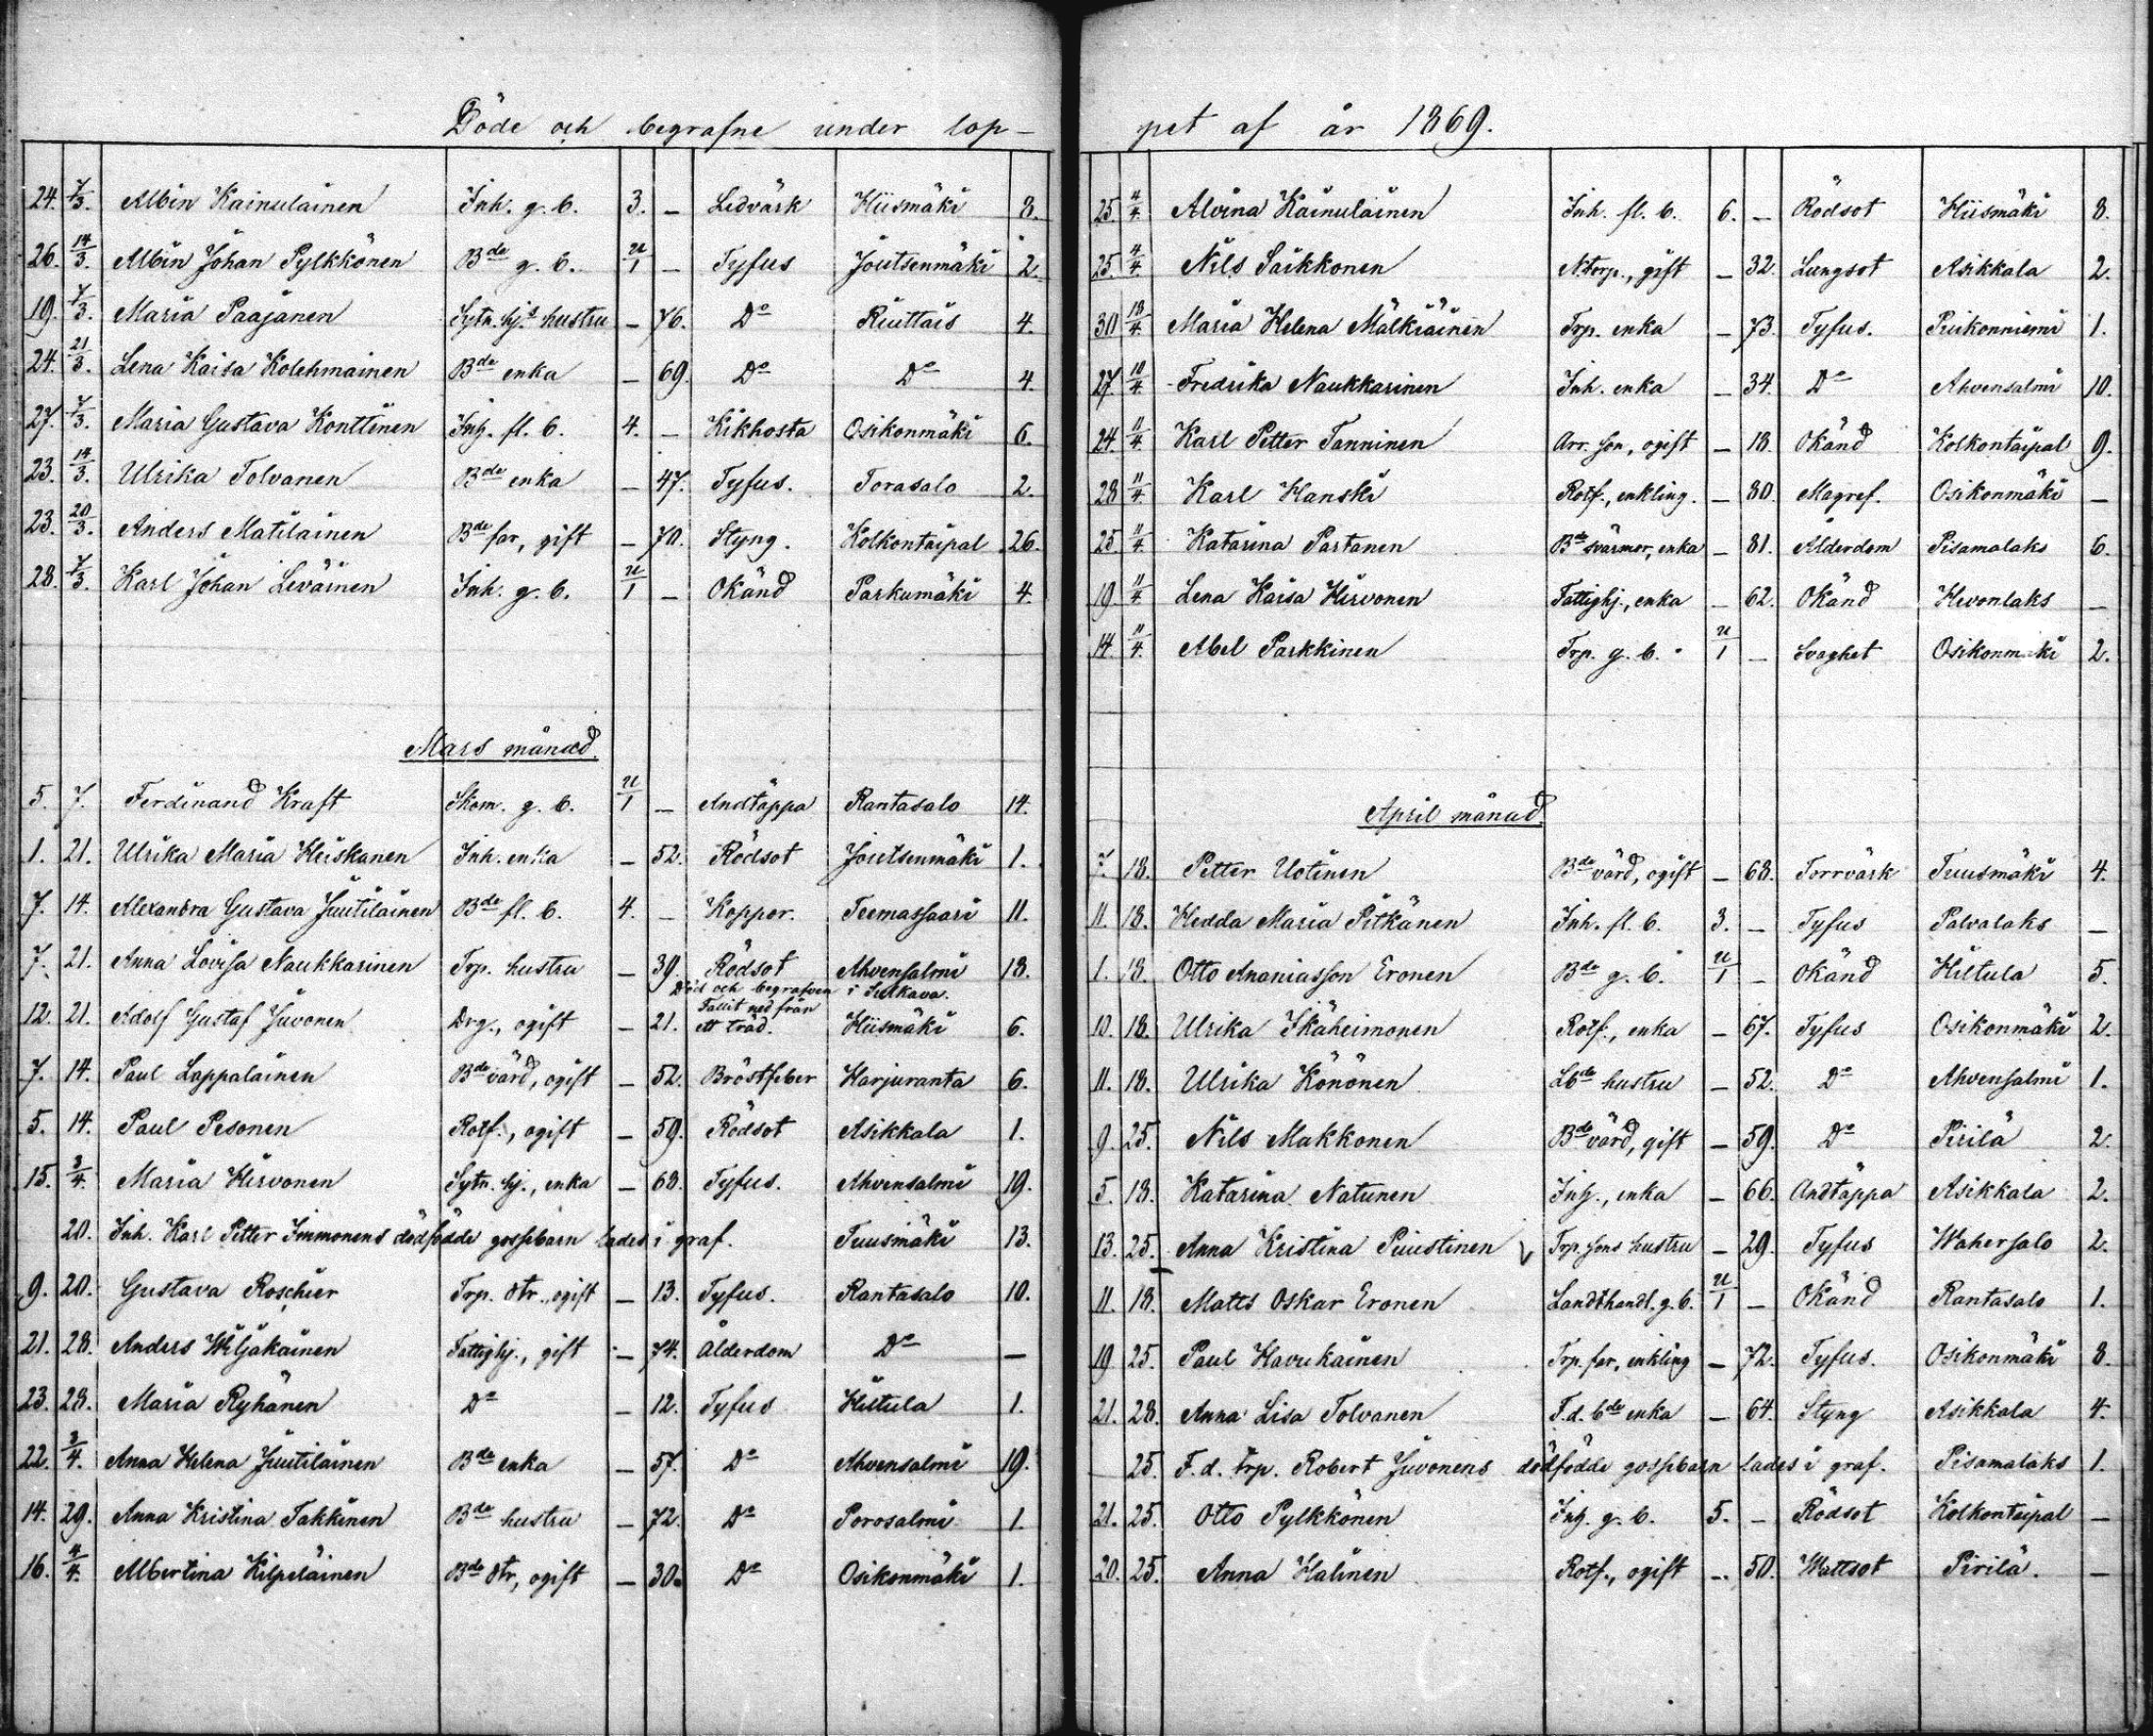 Döde och begrafne under lop-
24. 7/3. Albin Kainulainen Inh. g. b. 3. – Ledvärk Hiismäki 8.
26. 14/3. Albin Johan Pylkkönen Bde g. b. u/1 – Tyfus Joutsenmäki 2.
19. 7/3. Maria Paajanen Sytn. hj.s hustru – 76. Do Ruuttais 4.
24. 21/3. Lena Kaisa Kolehmainen Bde enka – 69. Do Do 4.
27. 7/3. Maria Gustava Konttinen Inh. fl. b. 4. – Kikhosta Osikonmäki 6.
23. 14/3. Ulrika Tolvanen Bde enka – 47. Tyfus. Torasalo 2.
23. 20/3. Anders Matilainen Bde far, gift – 70. Styng. Kolkontaipal 26.
28. 7/3. Karl Johan Leväinen Inh. g. b. u/1 – Okänd Parkumäki 4.
Mars månad.
5. 7. Ferdinand Kraft Skom. g. b. u/1 – Andtäppa Rantasalo 14.
1. 21. Ulrika Maria Heiskanen Inh. enka – 52. Rödsot Joutsenmäki 1.
7. 14. Alexandra Gustava Juutilainen Bde fl. b. 4. – Koppor. Teemassaari 11.
7. 21. Anna Lovisa Naukkarinen Trp. hustru – 39. Rödsot Ahvensalmi 18.
Död och begrafven i Sulkava.
12. 21. Adolf Gustaf Juvonen Drg., ogift – 21. Fallit ned från ett träd. Hiismäki 6.
7. 14. Paul Lappalainen Bde värd, ogift – 52. Bröstfeber Harjuranta 6.
5. 14. Paul Pesonen Rotf., ogift – 59. Rödsot Asikkala 1.
15. 3/4. Maria Hirvonen Sytn. hj., enka – 68. Tyfus. Ahvensalmi 19.
20. Inh. Karl Petter Immonens dödfödde gossebarn lades i graf. Tuusmäki 13.
9. 20. Gustava Roschier Trp. dtr., ogift – 13. Tyfus. Rantasalo 10.
21. 28. Anders Wiljakainen Fattighj., gift – 74. Ålderdom Do –
23. 28. Maria Ryhänen Do – 12. Tyfus Hiltula 1.
22. 3/4. Anna Helena Juutilainen Bde enka – 57. Do Ahvensalmi 19.
14. 29. Anna Kristina Takkinen Bde hustru – 72. Do Porosalmi 1.
16. 4/4. Albertina Kilpeläinen Bde dtr, ogift – 30. Do Osikonmäki 1.
pet af år 1869.
25. 4/4. Alvina Kainulainen Inh. fl. b. 6. – Rödsot Hiismäki 8.
25. 4/4. Nils Saikkonen N.torp., gift – 32. Lungsot Asikkala 2.
30 18/4. Maria Helena Mälkiäinen Trp. enka – 73. Tyfus. Puikonniemi 1.
27. 10/4. Fredrika Naukkarinen Inh. enka – 34. Do Ahvensalmi 10.
24. 11/4. Karl Petter Tanninen Arr. son, ogift – 18. Okänd Kolkontaipal 9.
28 11/4. Karl Hanski Rotf., enkling. – 80. Magref. Osikonmäki –
25. 11/4. Katarina Partanen Bde svärmor, enka – 81. Ålderdom Pisamalaks 6.
19. 11/4. Lena Kaisa Hirvonen Fattighj., enka – 62. Okänd Hevonlaks –
14. 11/4. Abel Parkkinen Trp. g. b. u/1 – Svaghet Osikonmäki 2.
April månad.
7. 18. Petter Uotinen Bde värd, ogift – 68. Torrvärk Tuusmäki 4.
11. 18. Hedda Maria Pitkänen Inh. fl. b. 3. – Tyfus Palvalaks –
1. 18. Otto Ananiasson Eronen Bde g. b. u/1 – Okänd Hiltula 5.
10. 18. Ulrika Ikäheimonen Rotf., enka – 67. Tyfus Osikonmäki 2.
11. 18. Ulrika Könönen Lbde hustru – 52. Do Ahvensalmi 1.
9. 25. Nils Makkonen Bde värd, gift – 59. Do Pirilä 2.
5. 18. Katarina Natunen Inh., enka – 66. Andtäppa Asikkala 2.
13. 25. Anna Kristina Puustinen Trp. sons hustru – 29. Tyfus Wahersalo 2.
11. 18. Matts Oskar Eronen Landthandl. g. b. u/1 – Okänd Rantasalo 1.
19 25. Paul Havukainen Trp. far, enkling – 72. Tyfus. Osikonmäki 8.
21. 28. Anna Lisa Tolvanen F. d. bde enka – 64. Styng Asikkala 4.
25. F. d. trp. Robert Juvonens dödfödde gossebarn lades i graf. Pisamalaks 1.
21. 25. Otto Pylkkönen Inh. g. b. 5. – Rödsot Kolkontaipal –
20. 25. Anna Halinen Rotf., ogift – 50. Wattsot Pirilä. –